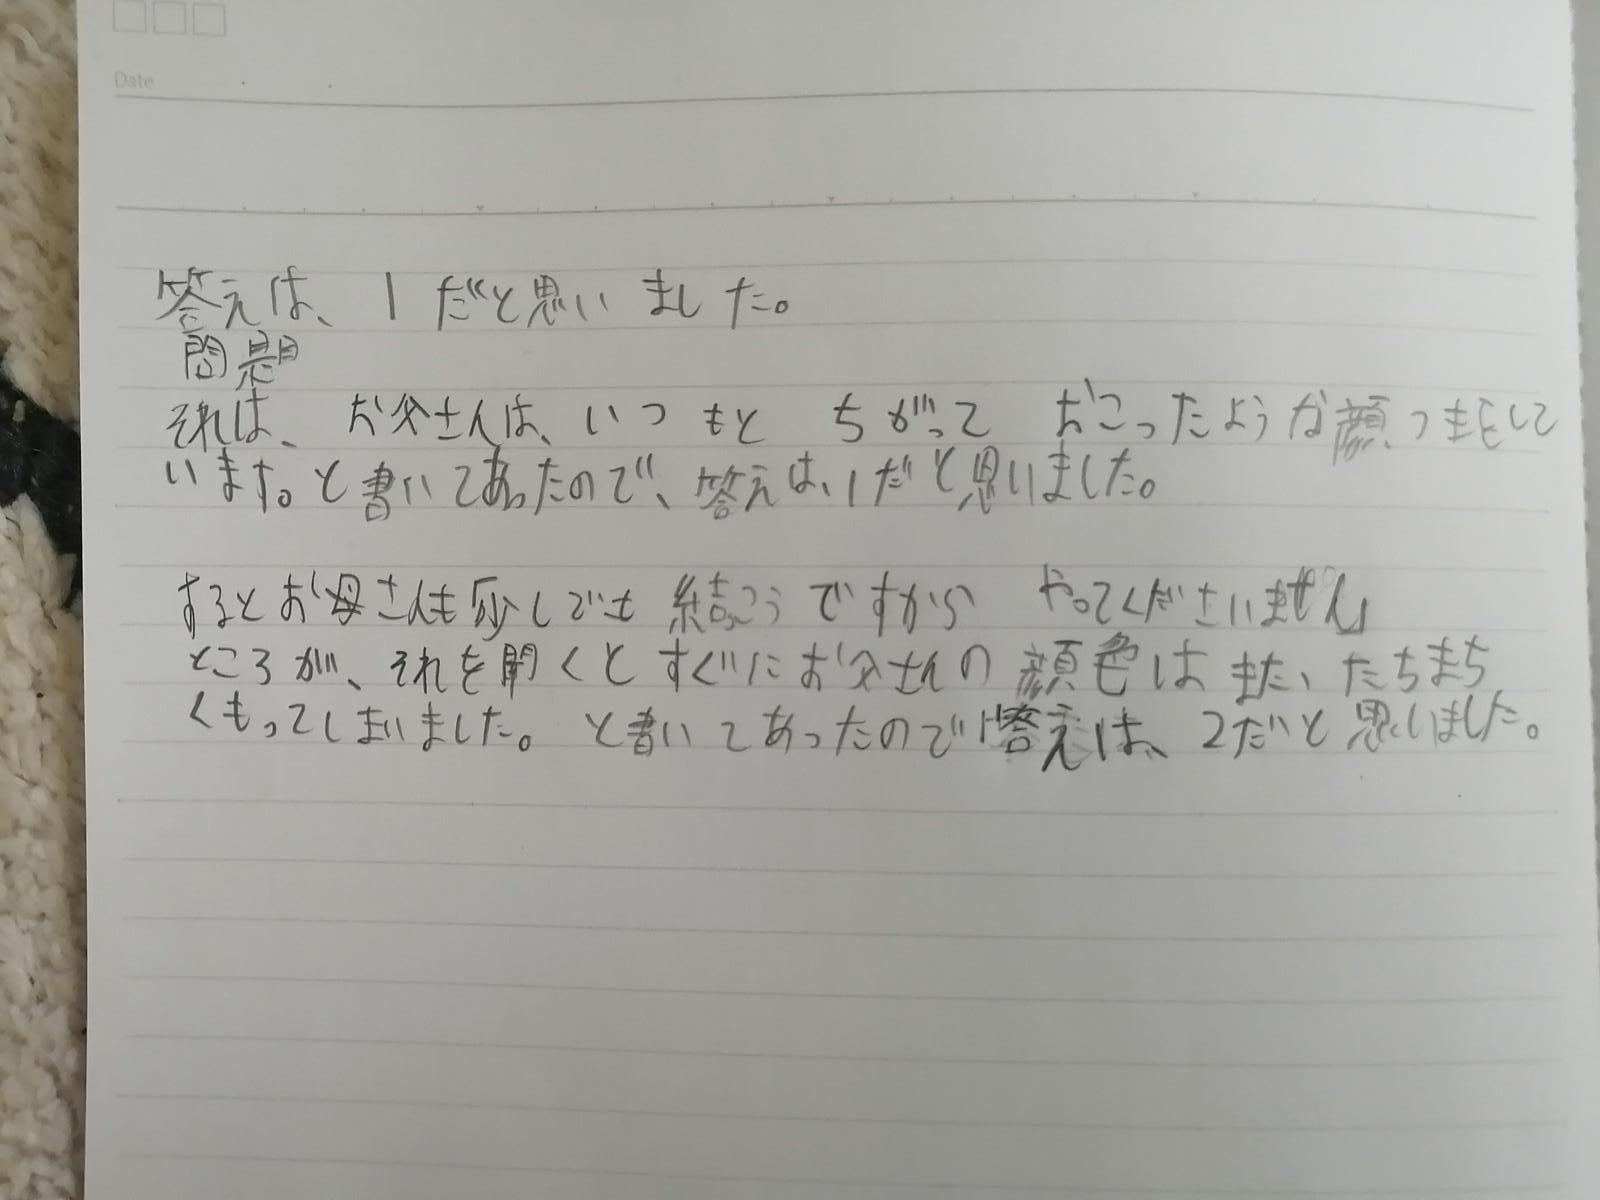 Date
答えは、1だと思いました。
問題
それは、お父さんは、いつもとちがっておこったような顔つきをして
います。と書いてあったので、答えは、1だと思いました。
するとお母さんも少しでも結っこうですからやってくださいません
ところが、それを聞くとすぐにお父さんの顔色はまた、たちまち
くもってしまいました。と書いてあったので答えは、2だと思いました。